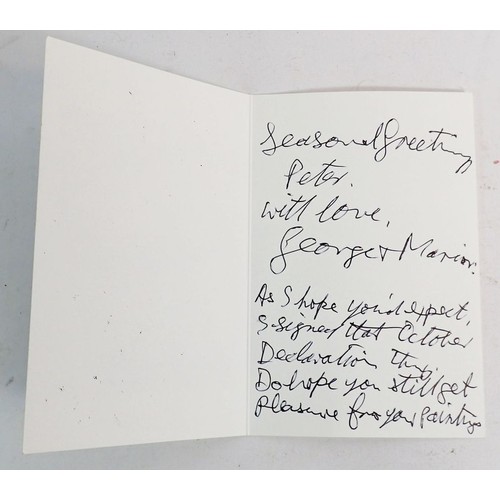 Seasonal Greetings
Peter.
with love,
George & Marion.
As I hope you'd expect,
I signed that October
Declaration thing,
Do hope you still get
pleasure from your paintings